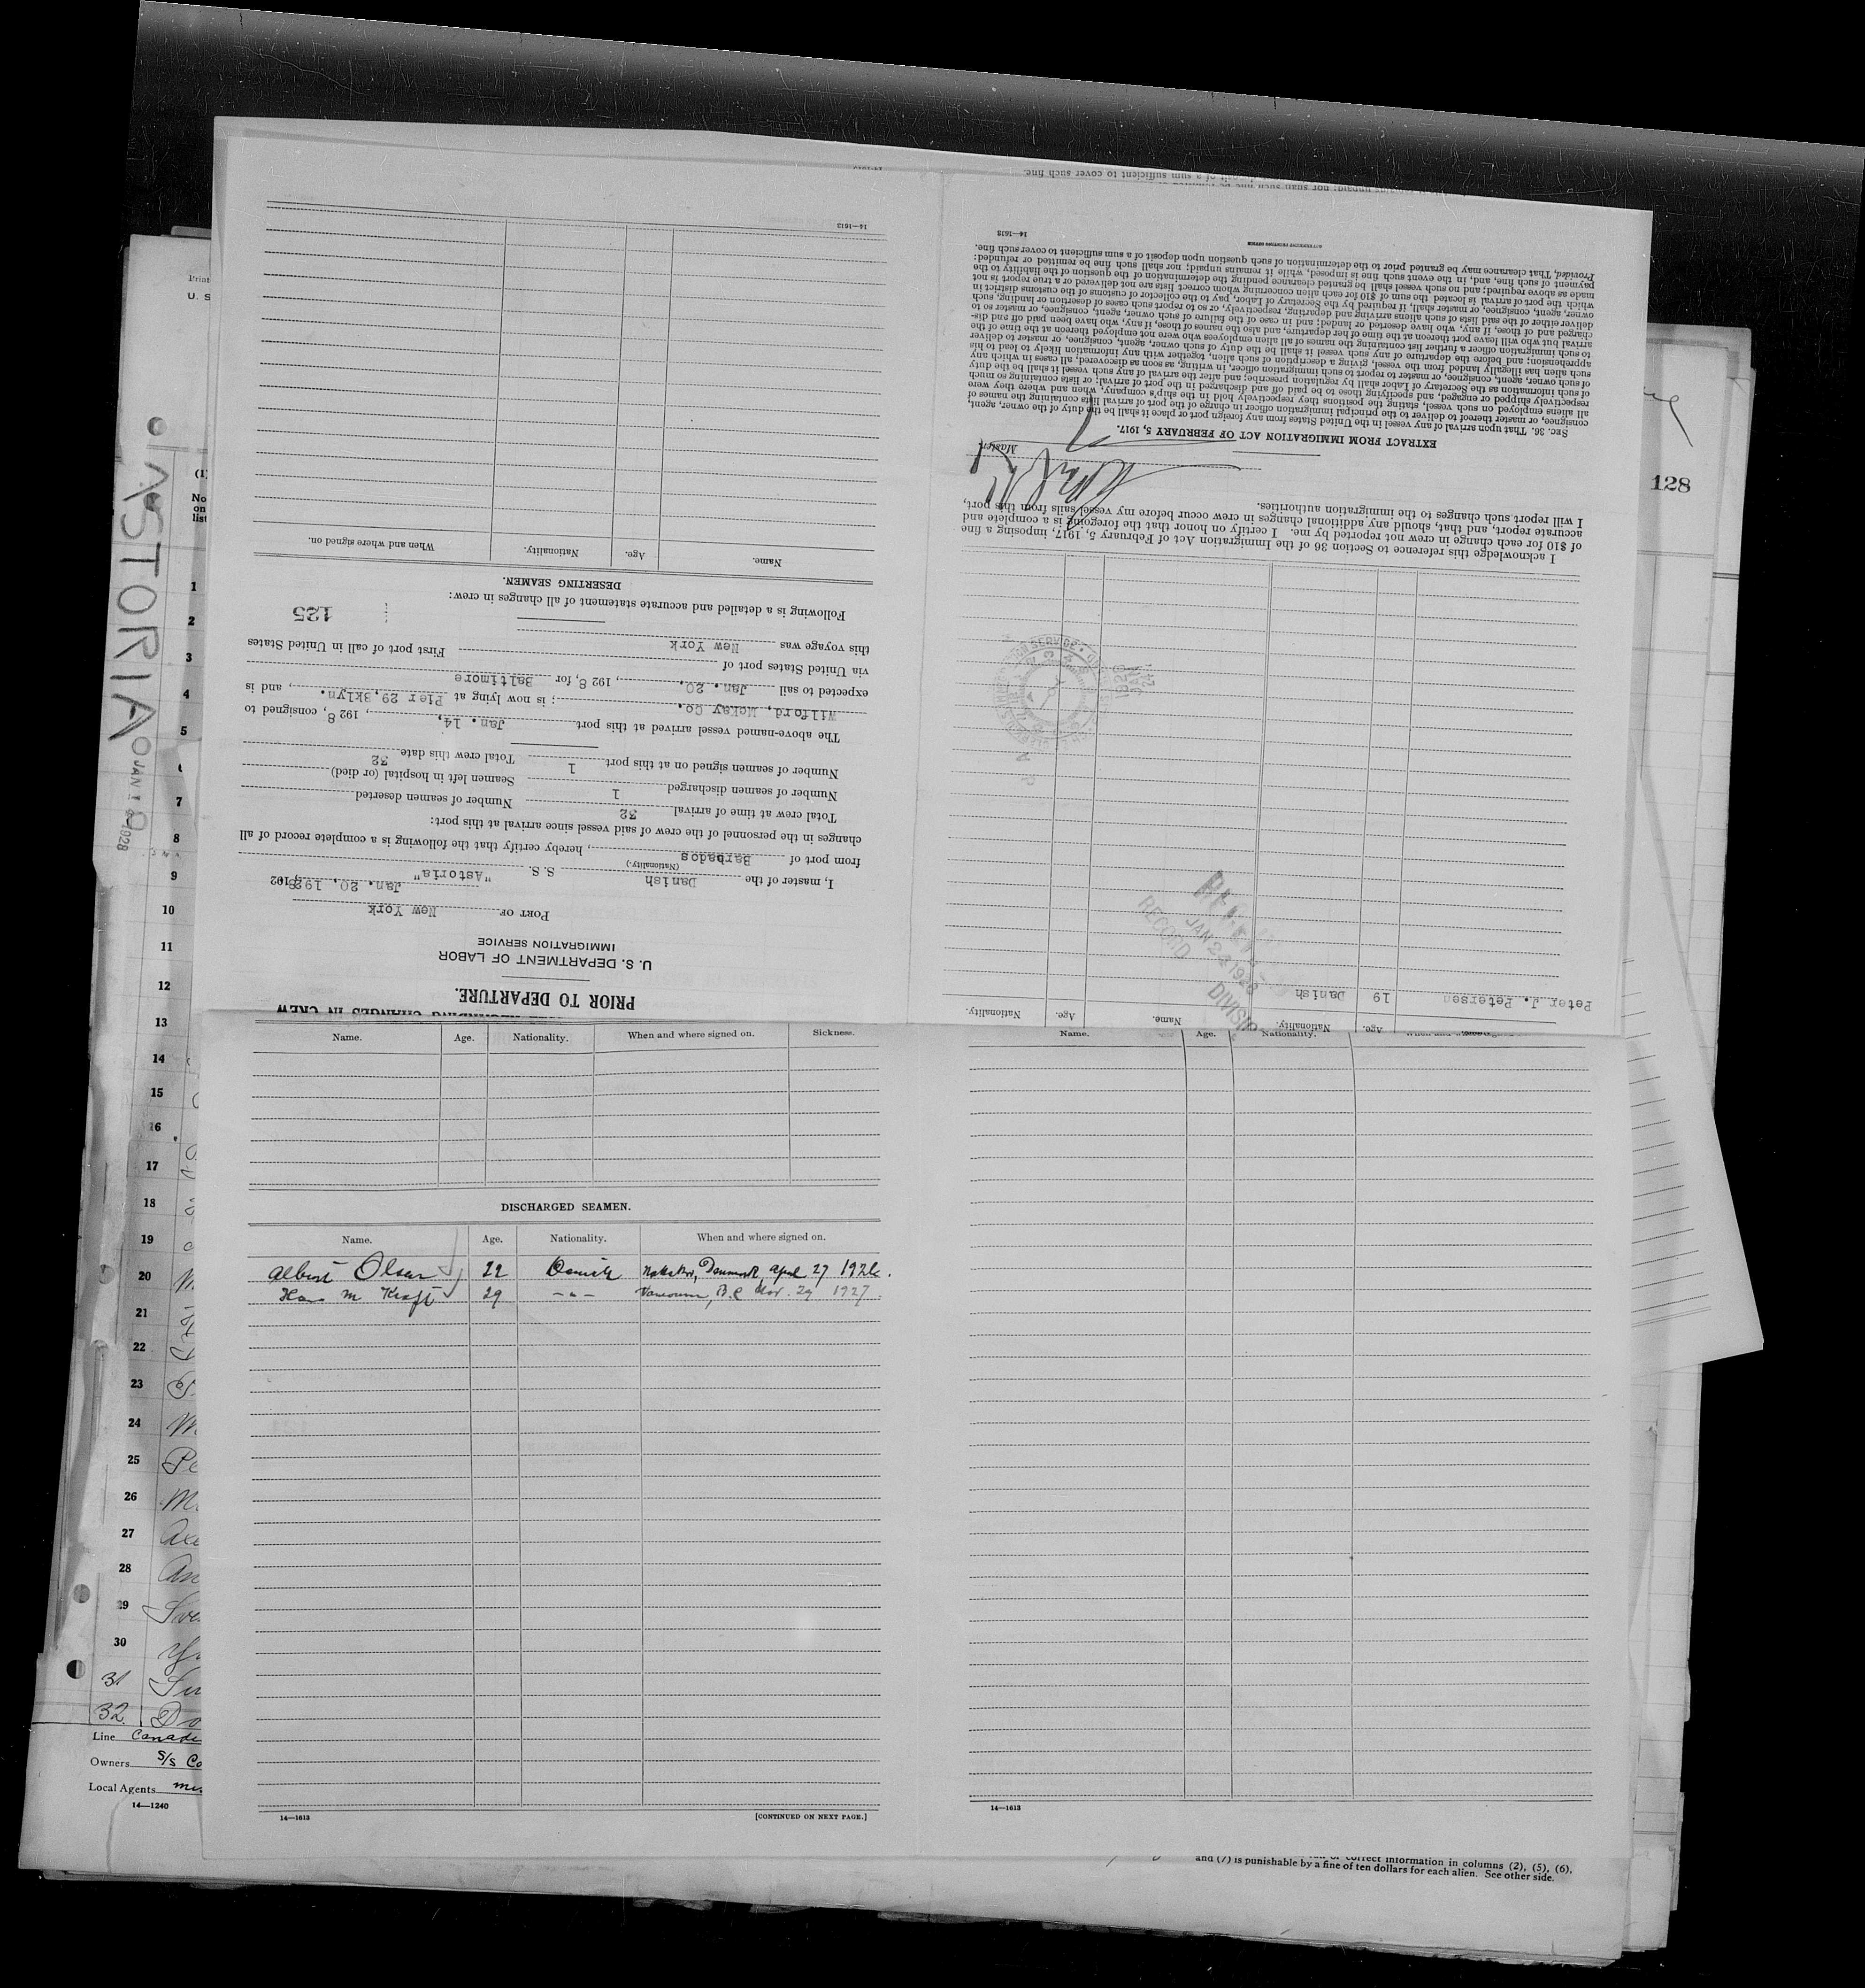 128
ASTORIA
JAN 19 1928
PRIOR TO DEPARTURE.
U. S. DEPARTMENT OF LABOR
IMMIGRATION SERVICE
PORT OF New York
Jan. 20, 1928
I, master of the Danish S. S. "Astoria"
(Nationality.)
from port of Barbados, hereby certify that the following is a complete record of all
changes in the personnel of the crew of said vessel since arrival at this port:
Total crew at time of arrival 32 Number of seamen deserted
Number of seamen discharged 1 Seamen left in hospital (or died)
Number of seamen signed on at this port 1 Total crew this date 32
The above-named vessel arrived at this port Jan. 14, 1928, consigned to
Wilford, McKay Co. ; is now lying at Pier 29, Bklyn. , and is
expected to sail Jan. 20, 1928, for Baltimore
via United States port of
First port of call in United States
this voyage was New York
125
Following is a detailed and accurate statement of all changes in crew:
DESERTING SEAMEN.
Name. Age. Nationality. When and where signed on.
14—1613
Name. Age. Nationality. Name. Age. Nationality.
Peter J. Petersen 19 Danish
RECORD DIVISION
JAN 22 1928
I acknowledge this reference to Section 36 of the Immigration Act of February 5, 1917, imposing a fine
of $10 for each change in crew not reported by me. I certify on honor that the foregoing is a complete and
accurate report, and that, should any additional changes in crew occur before my vessel sails from this port,
I will report such changes to the immigration authorities.
Master.
EXTRACT FROM IMMIGRATION ACT OF FEBRUARY 5, 1917.
Sec. 36. That upon arrival of any vessel in the United States from any foreign port or place it shall be the duty of the owner, agent,
consignee, or master thereof to deliver to the principal immigration officer in charge of the port of arrival lists containing the names of
all aliens employed on such vessel, stating the positions they respectively hold in the ship's company, when and where they were
respectively shipped or engaged, and specifying those to be paid off and discharged in the port of arrival; or lists containing so much
of such information as the Secretary of Labor shall by regulation prescribe; and after the arrival of any such vessel it shall be the duty
of such owner, agent, consignee, or master to report to such immigration officer, in writing, as soon as discovered, all cases in which any
such alien has illegally landed from the vessel, giving a description of such alien, together with any information likely to lead to his
apprehension; and before the departure of any such vessel it shall be the duty of such owner, agent, consignee, or master to deliver
to such immigration officer a further list containing the names of all alien employees who were not employed thereon at the time of the
arrival but who will leave port thereon at the time of her departure, and also the names of those, if any, who have been paid off and dis-
charged and of those, if any, who have deserted or landed; and in case of the failure of such owner, agent, consignee, or master so to
deliver either of the said lists of such aliens arriving and departing, respectively, or so to report such cases of desertion or landing, such
owner, agent, consignee, or master shall, if required by the Secretary of Labor, pay to the collector of customs of the customs district in
which the port of arrival is located the sum of $10 for each alien concerning whom correct lists are not delivered or a true report is not
made as above required; and no such vessel shall be granted clearance pending the determination of the question of the liability to the
payment of such fine, and, in the event such fine is imposed, while it remains unpaid; nor shall such fine be remitted or refunded:
Provided, That clearance may be granted prior to the determination of such question upon deposit of a sum sufficient to cover such fine.
14—1613
GOVERNMENT PRINTING OFFICE
deposit of a sum sufficient to cover such fine.
Name. Age. Nationality. When and where signed on. Sickness.
DISCHARGED SEAMEN.
Name. Age. Nationality. When and where signed on.
Albert Olsen 22 Danish Nakskov, Denmark, April 27 1926.
Hans M Kraft 29 -"- Vancouver, B.C Nov. 29 1927.
14—1613 [CONTINUED ON NEXT PAGE.]
Name. Age. Nationality.
14—1613
U. S
(1)
No
on
list
1
2
3
4
5
7
8
9
10
11
12
13
14
15
16
17
18
19
20
21
22
23
24
25
26
27
28
29
30
31
32
Line
Owners S/s Co
Local Agents
14—1240
correct information in columns (2), (5), (6),
and (7) is punishable by a fine of ten dollars for each alien. See other side.